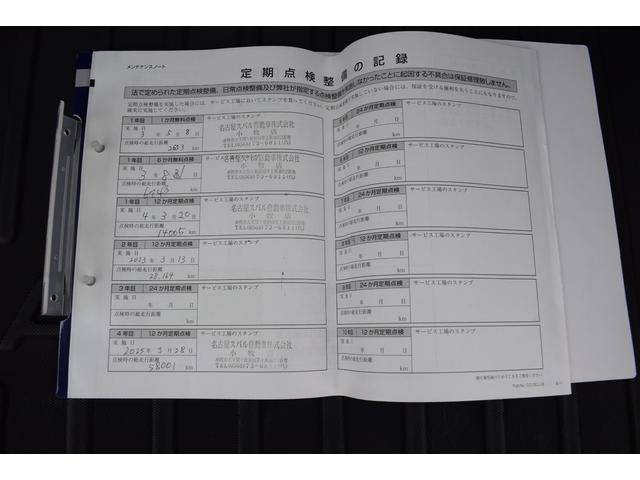 メンテナンスノート
定期点検整備の記録
法で定められた定期点検整備、日常点検整備及び弊社が指定する点検整備を実施しなかったことに起因する不具合は保証修理致しません。
定期点検整備を実施した場合には、サービス工場においてスタンプを貰ってください。
確実に実施してください。
1年目 1か月無料点検
サービス工場のスタンプ
実施日
3年 5月 8日
点検時の総走行距離
2653 km
名古屋スバル自動車株式会社
小牧店
1年目 6か月無料点検
サービス工場のスタンプ
実施日
3年 8月 31日
点検時の総走行距離
km
名古屋スバル自動車株式会社
小牧店
1年目 12か月定期点検
サービス工場のスタンプ
実施日
4年 3月 20日
点検時の総走行距離
14005 km
名古屋スバル自動車株式会社
小牧店
2年目 12か月定期点検
サービス工場のスタンプ
実施日
2023年 3月 13日
点検時の総走行距離
28,164 km
3年目 24か月定期点検
サービス工場のスタンプ
実施日
年 月 日
点検時の総走行距離
km
4年目 12か月定期点検
サービス工場のスタンプ
実施日
2025年 3月 28日
点検時の総走行距離
58001 km
名古屋スバル自動車株式会社
小牧店
24か月定期点検
サービス工場のスタンプ
年 月 日
点検時の総走行距離
km
12か月定期点検
サービス工場のスタンプ
年 月 日
点検時の総走行距離
km
24か月定期点検
サービス工場のスタンプ
年 月 日
点検時の総走行距離
km
12か月定期点検
サービス工場のスタンプ
年 月 日
点検時の総走行距離
km
9年目 24か月定期点検
サービス工場のスタンプ
年 月 日
点検時の総走行距離
km
10年目 12か月定期点検
サービス工場のスタンプ
年 月 日
点検時の総走行距離
km